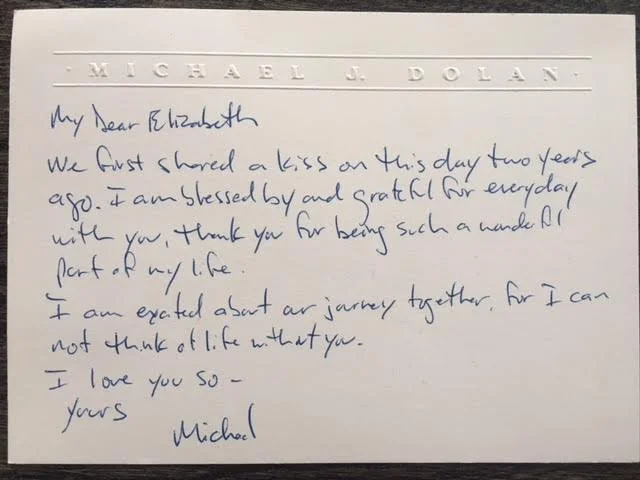 · MICHAEL J. DOLAN ·
My Dear Elizabeth
We first shared a kiss on this day two years
ago. I am blessed by and grateful for everyday
with you, thank you for being such a wonderful
part of my life.
I am excited about our journey together, for I can
not think of life without you.
I love you so –
yours
Michael